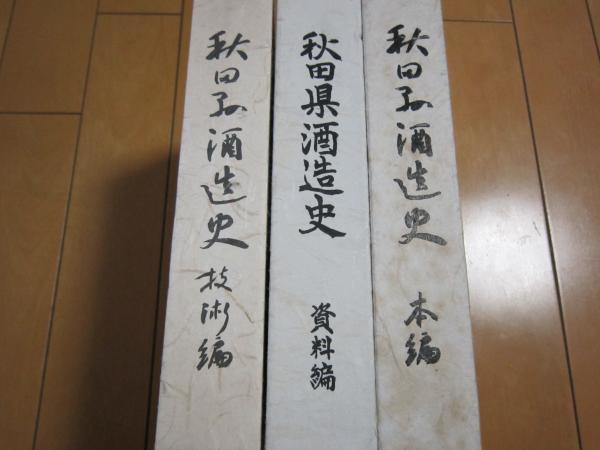 秋田県酒造史 本編
秋田県酒造史 資料編
秋田県酒造史 技術編